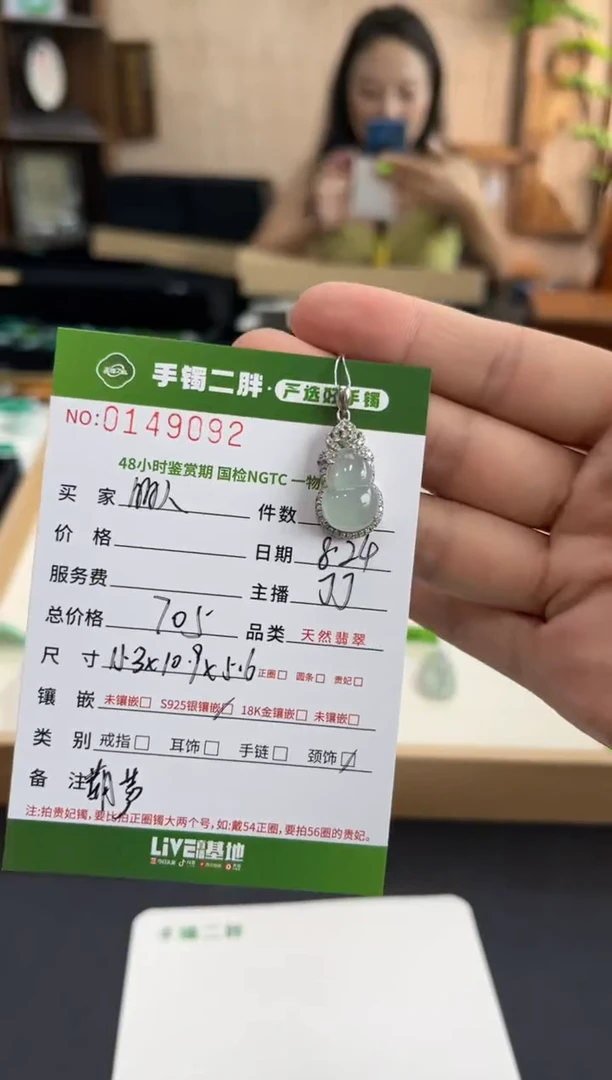 手镯二胖·严选好手镯
NO:0149092
48小时鉴赏期 国检NGTC 一物
买 家 件数
价 格 日期 8.24
服务费 主播 JJ
总价格 705 品类 天然翡翠
尺 寸 15.3x10.9x5.6 正圈□ 圆条□ 贵妃□
镶 嵌 未镶嵌□ S925银镶嵌☑ 18K金镶嵌□ 未镶嵌□
类 别 戒指□ 耳饰□ 手链□ 颈饰☑
备 注 葫芦
注:拍贵妃镯,要比拍正圈镯大两个号,如:戴54正圈,要拍56圈的贵妃。
LIVE 基地
手镯二胖